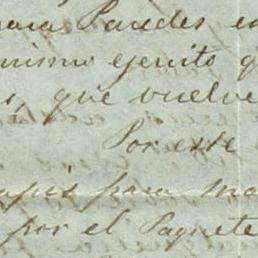 para Paredes en
mismo ejercito q
s, que vuelve
Por este
apis para ma
por el Paquete